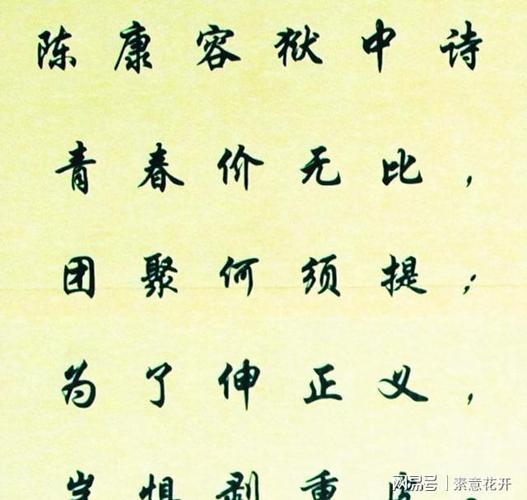 陈康容狱中诗
青春价无比，
团聚何须提；
为了伸正义，
岂惧剥重
网易号 | 素意花开